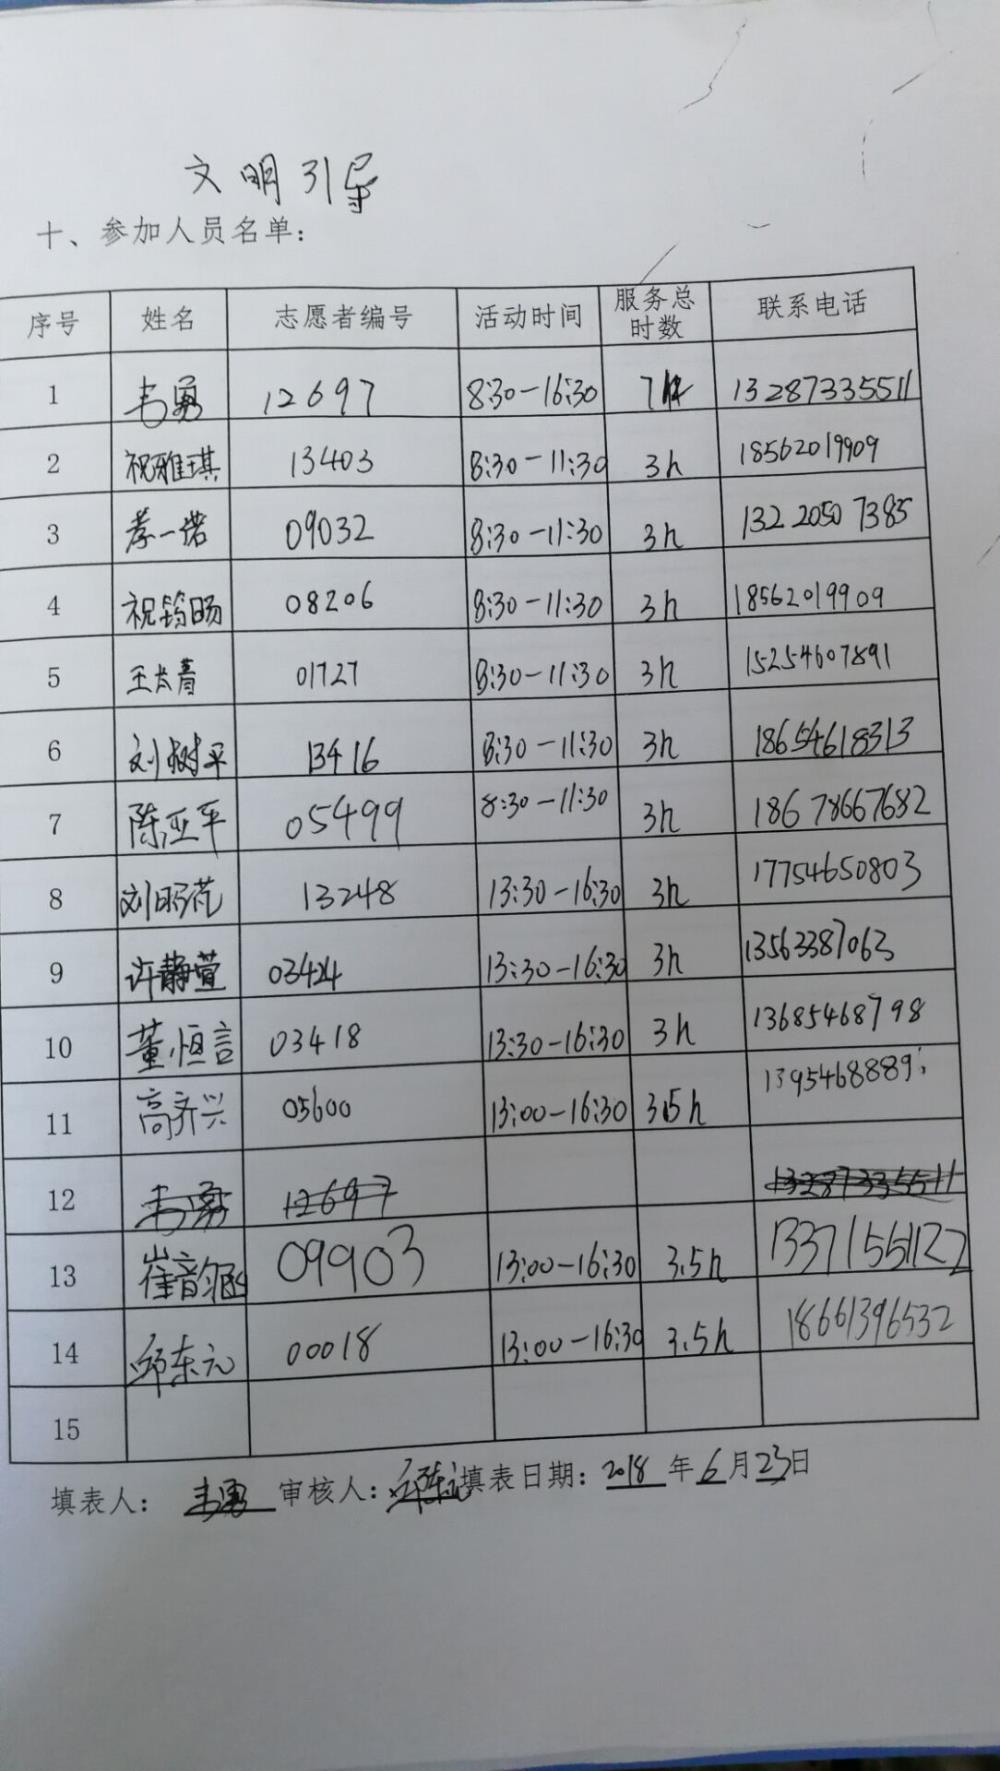 文明引导
十、参加人员名单：
序号 姓名 志愿者编号 活动时间 服务总时数 联系电话
1 韦勇 12697 8:30-16:30 7h 13287335511
2 祝雅琪 13403 8:30-11:30 3h 18562019909
3 李一诺 09032 8:30-11:30 3h 13220507385
4 祝筠旸 08206 8:30-11:30 3h 18562019909
5 01727 8:30-11:30 3h 15254607891
6 刘树平 13416 8:30-11:30 3h 18654618313
7 陈亚平 05499 8:30-11:30 3h 18678667682
8 13248 13:30-16:30 3h 17754650803
9 许静萱 03424 13:30-16:30 3h 13563387063
10 董恒言 03418 13:30-16:30 3h 13685468798
11 高齐兴 05600 13:00-16:30 3.5h 1395468889
12 韦勇 12697 13287335511
13 崔韵涵 09903 13:00-16:30 3.5h 13371551122
14 邱东元 00018 13:00-16:30 3.5h 18661396532
15
填表人： 韦勇 审核人：邱东元 填表日期：2018 年 6 月 23 日